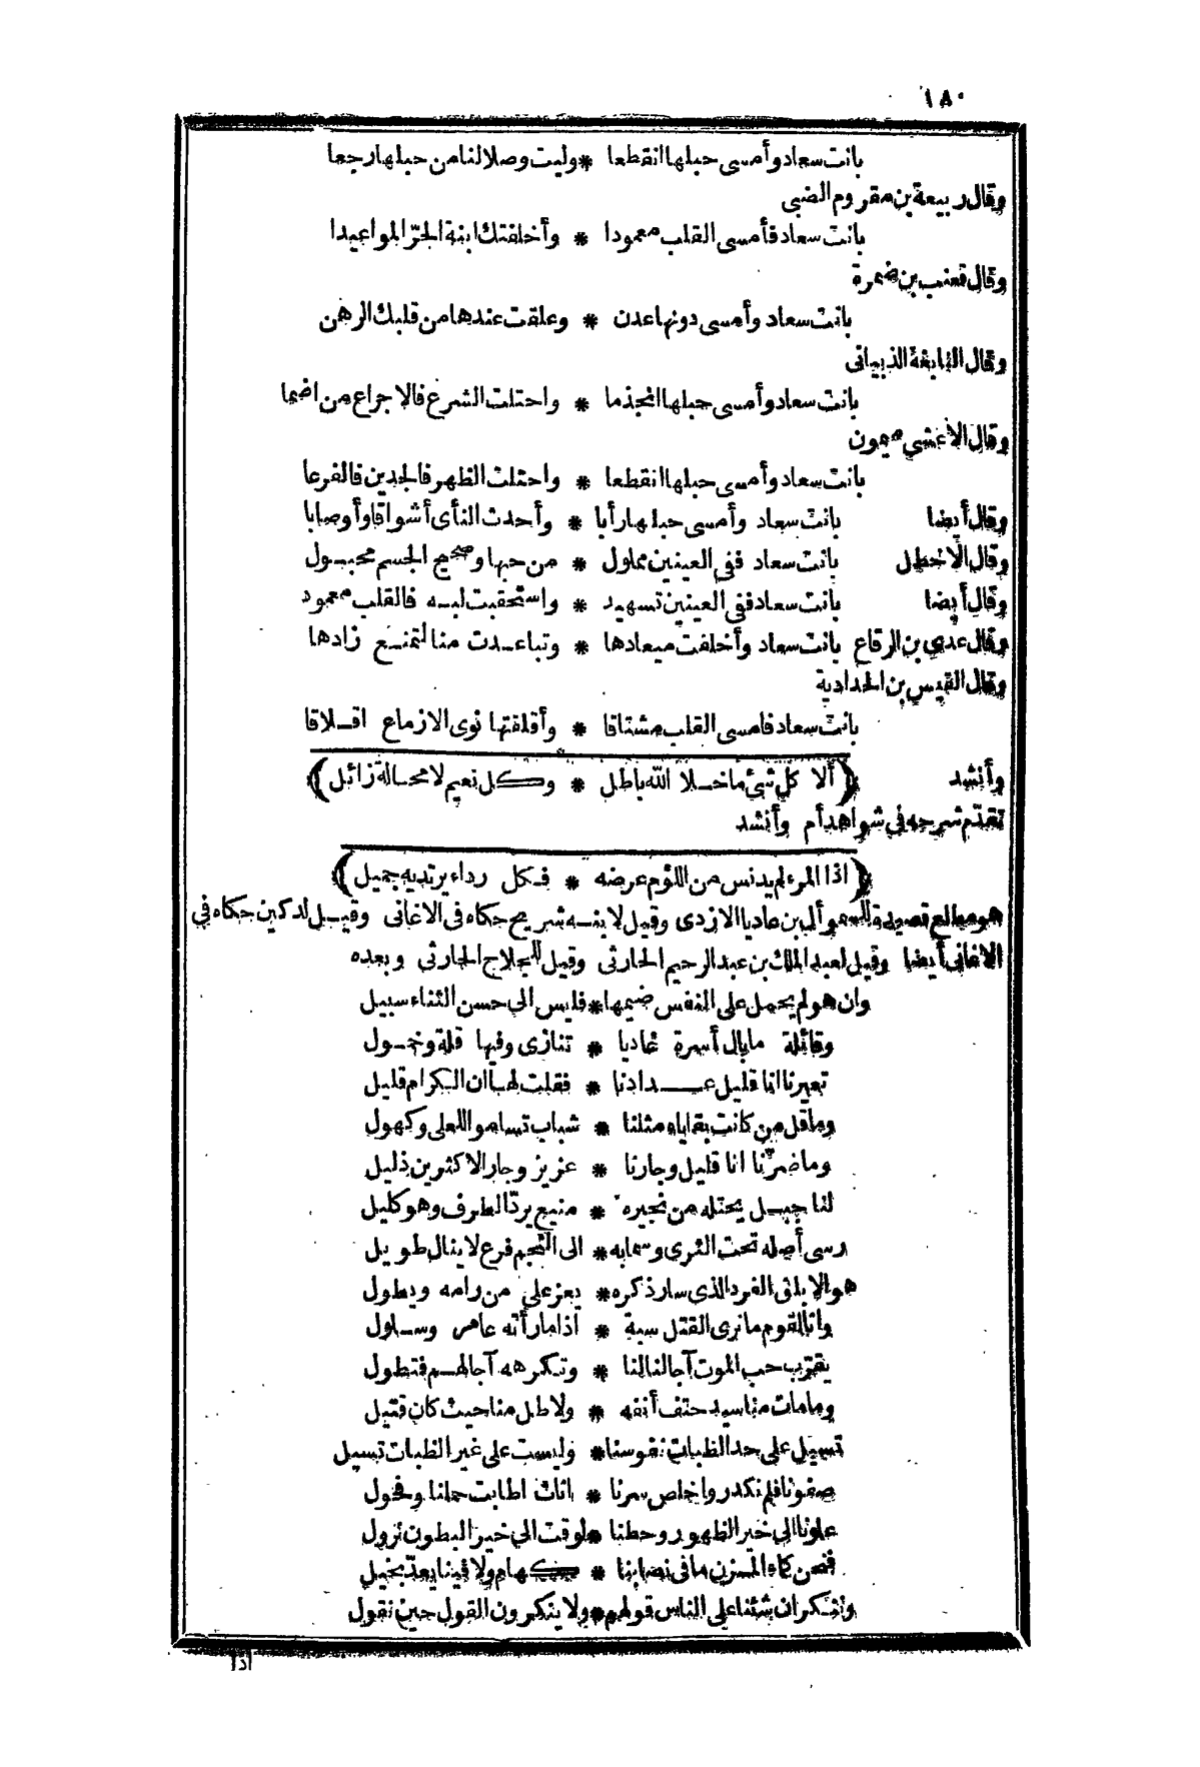 ١٨٠
بانت سعاد وأمسى حبلها انقطعا * وليت وصلا لنا من حبلها رجعا
وقال ربيعة بن مقروم الضبى
بانت سعاد فأمسى القلب معمودا * وأخلفتك ابنة الحرّ المواعيدا
وقال قعنب بن ضمرة
بانت سعاد وأمسى دونها عدن * وعلقت عندها من قلبك الرهن
وقال النابغة الذبيانى
بانت سعاد وأمسى حبلها انجذما * واحتلت الشرع فالاجراع من اضما
وقال الاعشى ميمون
بانت سعاد وأمسى حبلها انقطعا * واحتلت الظهر فالجدين فالفرعا
وقال أيضا بانت سعاد وأمسى حبلها رأبا * وأحدث النأى أشواقا وأوصابا
وقال الاخطل بانت سعاد ففى العينين مملول * من حبها وصحيح الجسم مخبول
وقال أيضا بانت سعاد ففى العينين تسهيد * واستحقبت لبه فالقلب معمود
وقال عدى بن الرقاع بانت سعاد وأخلفت ميعادها * وتباعدت منا لتمنع زادها
وقال القيس بن الحدادية
بانت سعاد فامسى القلب مشتاقا * وأقلقتها نوى الازماع اقلاقا
وأنشد (ألا كل شئ ما خلا الله باطل * وكل نعيم لا محالة زائل)
تقدّم شرحه فى شواهد أم وأنشد
(اذا المرء لم يدنس من اللؤم عرضه * فكل رداء يرتديه جميل)
هو مطلع قصيدة للسموأل بن عاديا الازدى وقيل لابنه شريح حكاه فى الاغانى وقيل لدكين حكاه فى
الاغانى أيضا وقيل لعبد الملك بن عبد الرحيم الحارثى وقيل للجلاج الحارثى وبعده
وان هو لم يحمل على النفس ضيمها * فليس الى حسن الثناء سبيل
وقائلة ما بال أسرة عاديا * تنازى وفيها قلة وخمول
تعيرنا انا قليل عدادنا * فقلت لها ان الكرام قليل
وما قل من كانت بقاياه مثلنا * شباب تساموا للعلى وكهول
وما ضرّنا انا قليل وجارنا * عزيز وجار الاكثرين ذليل
لنا جبل يحتله من نجيره * منيع يردّ الطرف وهو كليل
رسى أصله تحت الثرى وسمابه * الى النجم فرع لا ينال طويل
هو الابلق الفرد الذى سار ذكره * يعز على من رامه ويطول
وانا لقوم ما نرى القتل سبة * اذا ما رأته عامر وسلول
يقرّب حب الموت آجالنا لنا * وتكرهه آجالهم فتطول
وما مات منا سيد حتف أنفه * ولا طل منا حيث كان قتيل
تسيل على حد الظبات نفوسنا * وليست على غير الظبات تسيل
صفونا فلم نكدر واخلص سرنا * اناث اطابت حملنا وفحول
علونا الى خير الظهور وحطنا * لوقت الى خير البطون نزول
فنحن كماء المزن ما فى نصابنا * كهام ولا فينا يعدّ بخيل
وننكر ان شئنا على الناس قولهم * ولا ينكرون القول حين نقول
اذا